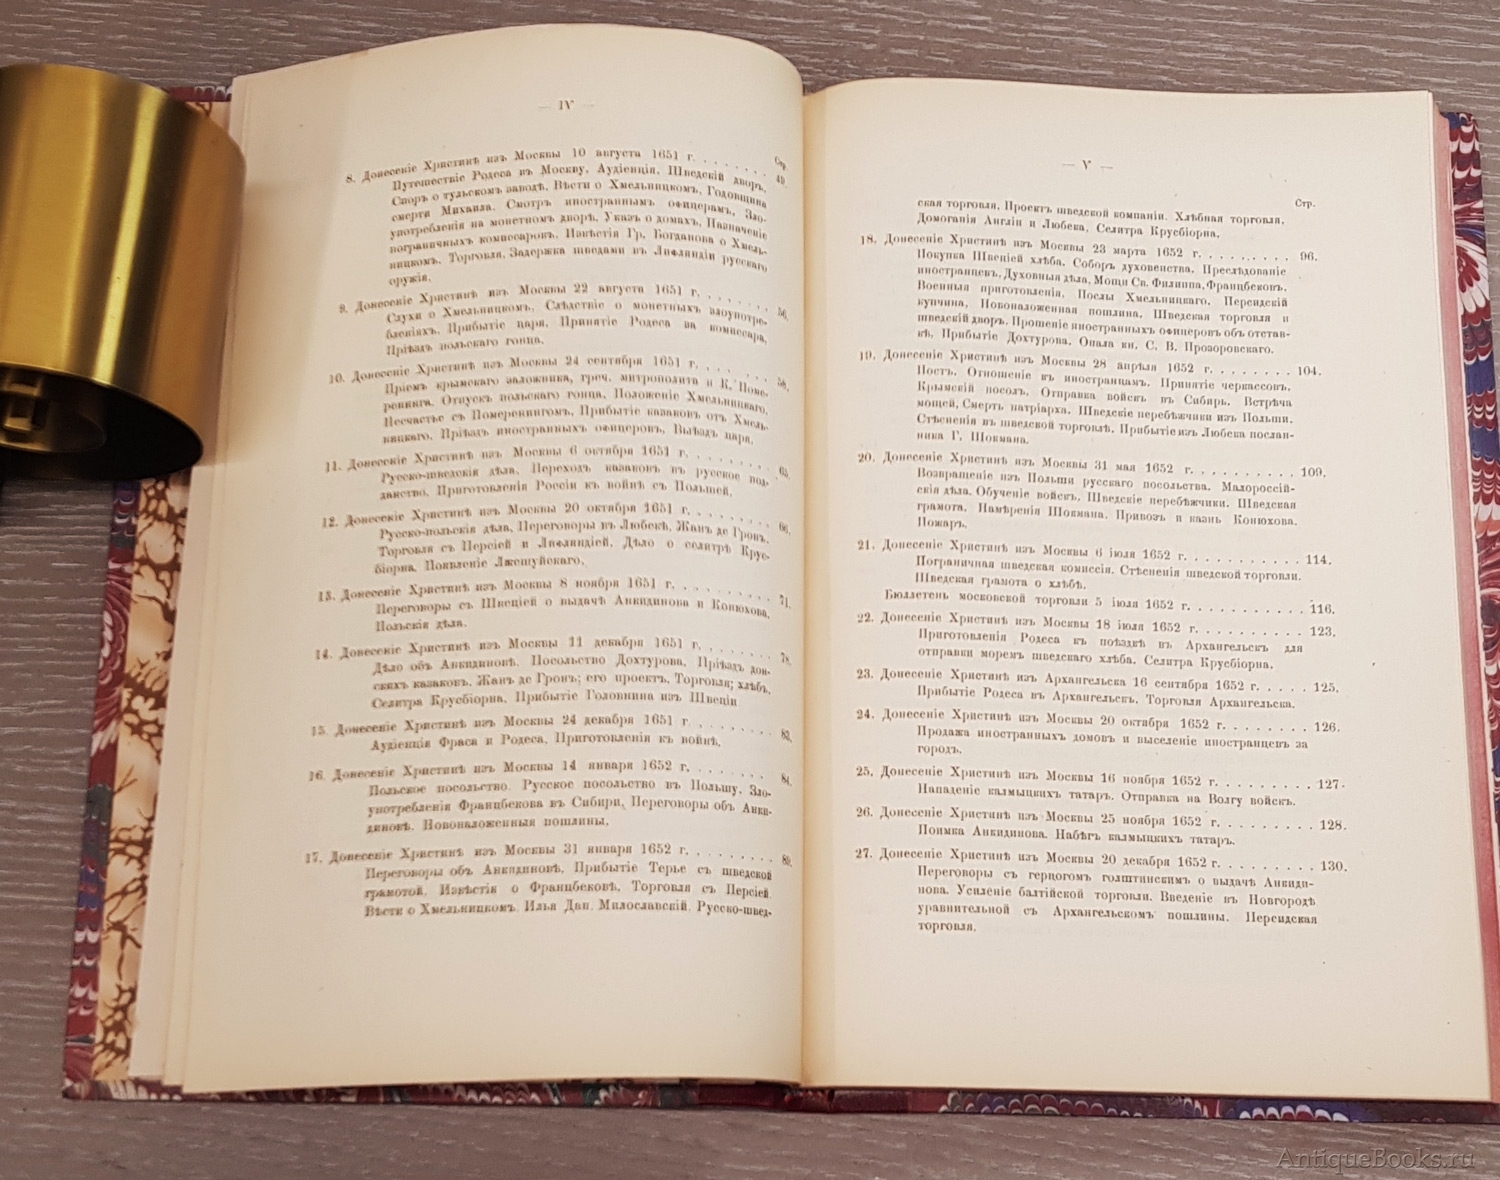 — IV —
Стр.
8. Донесеніе Христинѣ изъ Москвы 10 августа 1651 г. . . . . . . . 49.
Путешествіе Родеса въ Москву. Аудіенція. Шведскій дворъ.
Споръ о тульскомъ заводѣ. Вѣсти о Хмельницкомъ. Годовщина
смерти Михаила. Смотръ иностраннымъ офицерамъ. Зло-
употребленія на монетномъ дворѣ. Указъ о домахъ. Назначеніе
пограничныхъ комиссаровъ. Извѣстія Гр. Богданова о Хмель-
ницкомъ. Торговля. Задержка шведами въ Лифляндіи русскаго
оружія.
9. Донесеніе Христинѣ изъ Москвы 22 августа 1651 г. . . . . . . . 56.
Слухи о Хмельницкомъ. Слѣдствіе о монетныхъ злоупотре-
бленіяхъ. Прибытіе царя. Принятіе Родеса за комиссара.
Пріѣздъ польскаго гонца.
10. Донесеніе Христинѣ изъ Москвы 24 сентября 1651 г. . . . . . . 58.
Пріемъ крымскаго заложника, греч. митрополита и К. Поме-
ренинга. Отпускъ польскаго гонца. Положеніе Хмельницкаго.
Несчастье съ Померенингомъ. Прибытіе казаковъ отъ Хмель-
ницкаго. Пріѣздъ иностранныхъ офицеровъ. Выѣздъ царя.
11. Донесеніе Христинѣ изъ Москвы 6 октября 1651 г. . . . . . . . 65.
Русско-шведскія дѣла. Переходъ казаковъ въ русское под-
данство. Приготовленія Россіи къ войнѣ съ Польшей.
12. Донесеніе Христинѣ изъ Москвы 20 октября 1651 г. . . . . . . . 66.
Русско-польскія дѣла. Переговоры въ Любекѣ. Жанъ де Гронъ.
Торговля съ Персіей и Лифляндіей. Дѣло о селитрѣ Крус-
біорна. Появленіе Лжешуйскаго.
13. Донесеніе Христинѣ изъ Москвы 8 ноября 1651 г. . . . . . . . 71.
Переговоры съ Швеціей о выдачѣ Анкидинова и Конюхова.
Польскія дѣла.
14. Донесеніе Христинѣ изъ Москвы 11 декабря 1651 г. . . . . . . 78.
Дѣло объ Анкидиновѣ. Посольство Дохтурова. Пріѣздъ дон-
скихъ казаковъ. Жанъ де Гронъ; его проектъ. Торговля; хлѣбъ.
Селитра Крусбіорна. Прибытіе Головнина изъ Швеціи
15. Донесеніе Христинѣ изъ Москвы 24 декабря 1651 г. . . . . . . . 83.
Аудіенція Фраса и Родеса. Приготовленія къ войнѣ.
16. Донесеніе Христинѣ изъ Москвы 14 января 1652 г. . . . . . . . 84.
Польское посольство. Русское посольство въ Польшу. Зло-
употребленія Францбекова въ Сибири. Переговоры объ Анки-
диновѣ. Новоналоженныя пошлины.
17. Донесеніе Христинѣ изъ Москвы 31 января 1652 г. . . . . . . . 89.
Переговоры объ Анкидиновѣ. Прибытіе Терье съ шведской
грамотой. Извѣстія о Францбековѣ. Торговля съ Персіей.
Вѣсти о Хмельницкомъ. Илья Дан. Милославскій. Русско-швед-
— V —
Стр.
ская торговля. Проектъ шведской компаніи. Хлѣбная торговля.
Домоганія Англіи и Любека. Селитра Крусбіорна.
18. Донесеніе Христинѣ изъ Москвы 23 марта 1652 г. . . . . . . . . 96.
Покупка Швеціей хлѣба. Соборъ духовенства. Преслѣдованіе
иностранцевъ. Духовныя дѣла. Мощи Св. Филиппа. Францбековъ.
Военныя приготовленія. Послы Хмельницкаго. Персидскій
купчина. Новоналоженная пошлина. Шведская торговля и
шведскій дворъ. Прошеніе иностранныхъ офицеровъ объ отстав-
кѣ. Прибытіе Дохтурова. Опала кн. С. В. Прозоровскаго.
19. Донесеніе Христинѣ изъ Москвы 28 апрѣля 1652 г. . . . . . . . 104.
Постъ. Отношеніе къ иностранцамъ. Принятіе черкассовъ.
Крымскій посолъ. Отправка войскъ въ Сибирь. Встрѣча
мощей. Смерть патріарха. Шведскіе перебѣжчики изъ Польши.
Стѣсненія въ шведской торговлѣ. Прибытіе изъ Любека послан-
ника Г. Шокмана.
20. Донесеніе Христинѣ изъ Москвы 31 мая 1652 г. . . . . . . . . . 109.
Возвращеніе изъ Польши русскаго посольства. Малороссій-
скія дѣла. Обученіе войскъ. Шведскіе перебѣжчики. Шведская
грамота. Намѣренія Шокмана. Привозъ и казнь Конюхова.
Пожаръ.
21. Донесеніе Христинѣ изъ Москвы 6 іюля 1652 г. . . . . . . . . . . 114.
Пограничная шведская комиссія. Стѣсненія шведской торговли.
Шведская грамота о хлѣбѣ.
Бюллетень московской торговли 5 іюля 1652 г. . . . . . . . . . . 116.
22. Донесеніе Христинѣ изъ Москвы 18 іюля 1652 г. . . . . . . . . . 123.
Приготовленія Родеса къ поѣздкѣ въ Архангельскъ для
отправки моремъ шведскаго хлѣба. Селитра Крусбіорна.
23. Донесеніе Христинѣ изъ Архангельска 16 сентября 1652 г. . . . . 125.
Прибытіе Родеса въ Архангельскъ. Торговля Архангельска.
24. Донесеніе Христинѣ изъ Москвы 20 октября 1652 г. . . . . . . . 126.
Продажа иностранныхъ домовъ и выселеніе иностранцевъ за
городъ.
25. Донесеніе Христинѣ изъ Москвы 16 ноября 1652 г. . . . . . . . . 127.
Нападеніе калмыцкихъ татаръ. Отправка на Волгу войскъ.
26. Донесеніе Христинѣ изъ Москвы 25 ноября 1652 г. . . . . . . . . 128.
Поимка Анкидинова. Набѣгъ калмыцкихъ татаръ.
27. Донесеніе Христинѣ изъ Москвы 20 декабря 1652 г. . . . . . . . . 130.
Переговоры съ герцогомъ голштинскимъ о выдачѣ Анкиди-
нова. Усиленіе балтійской торговли. Введеніе въ Новгородѣ
уравнительной съ Архангельскомъ пошлины. Персидская
торговля.
AntiqueBooks.ru